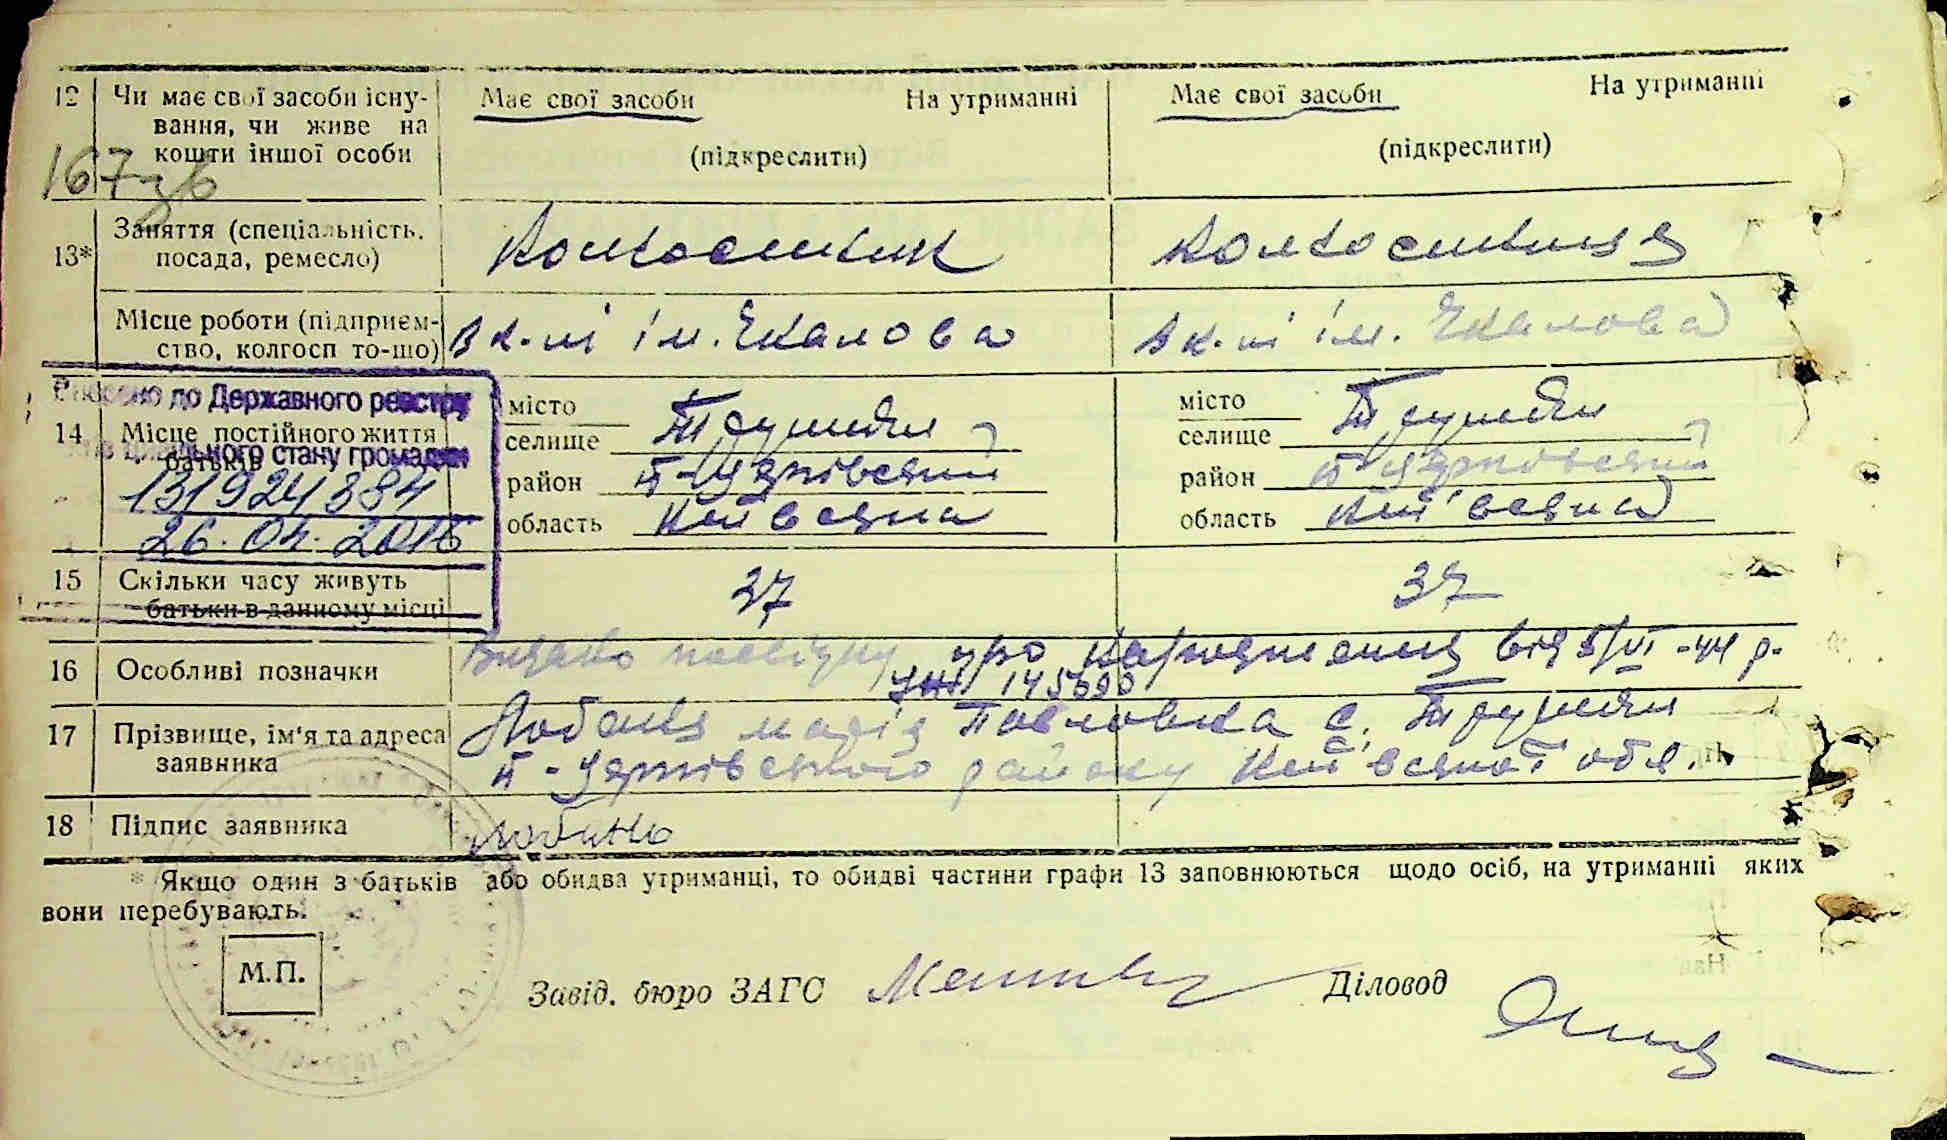 12 Чи має свої засоби існу- Має свої засоби На утриманні Має свої засоби На утриманні
вання, чи живе на
кошти іншої особи (підкреслити) (підкреслити)
167зв
13* Заняття (спеціальність, Колгоспник Колгоспниця
посада, ремесло)
Місце роботи (підприєм- В к-пі ім. Чкалова В к-пі ім. Чкалова
ство, колгосп то-що)
Внесено до Державного реєстру
14 Місце постійного життя місто місто
батьків селище Трушки селище Трушки
актів цивільного стану громадян
131924384 район район
26.04.2016 область Київська область Київська
15 Скільки часу живуть 37 37
батьки в данному місці
16 Особливі позначки Видано посвідку про народження від 5/VI-44 р.
145090
17 Прізвище, ім'я та адреса Марія Павловна с. Трушки
заявника району Київської обл.
18 Підпис заявника
* Якщо один з батьків або обидва утриманці, то обидві частини графи 13 заповнюються щодо осіб, на утриманні яких
вони перебувають.
М.П.
Завід. бюро ЗАГС Діловод